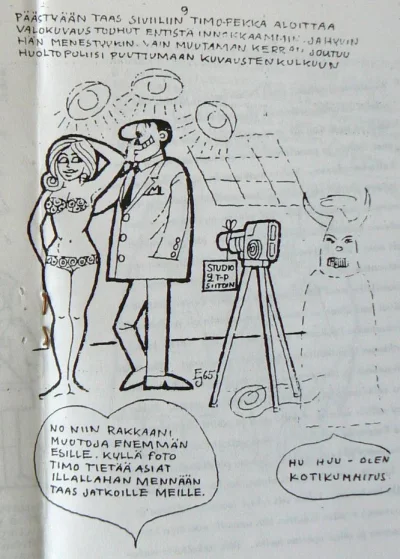 9
PÄÄSTYÄÄN TAAS SIVIILIIN TIMO-PEKKA ALOITTAA
VALOKUVAUSTOUHUT ENTISTÄ INNOKKAAMMIN. JA HYVIN
HÄN MENESTYYKIN. VAIN MUUTAMAN KERRAN JOUTUU
HUOLTOPOLIISI PUUTTUMAAN KUVAUSTEN KULKUUN
STUDIO
T-P
SIITOIN
EJ 65
NO NIIN RAKKAANI
MUOTOJA ENEMMÄN
ESILLE. KYLLÄ FOTO
TIMO TIETÄÄ ASIAT
ILLALLAHAN MENNÄÄN
TAAS JATKOILLE MEILLE.
HU HUU - OLEN
KOTIKUMMITUS